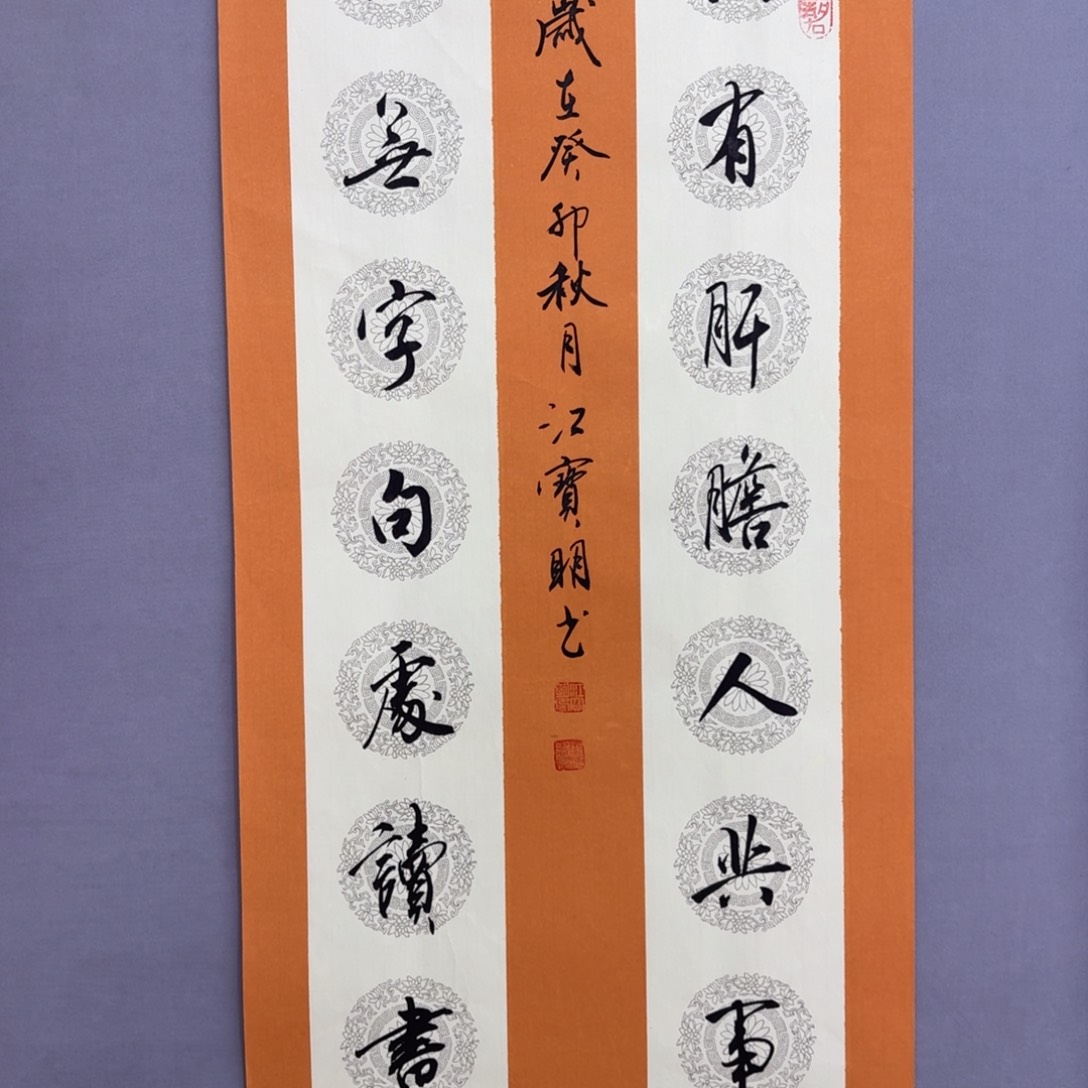 有肝膽人共事
歲在癸卯秋月江寶明书
無字句處讀書